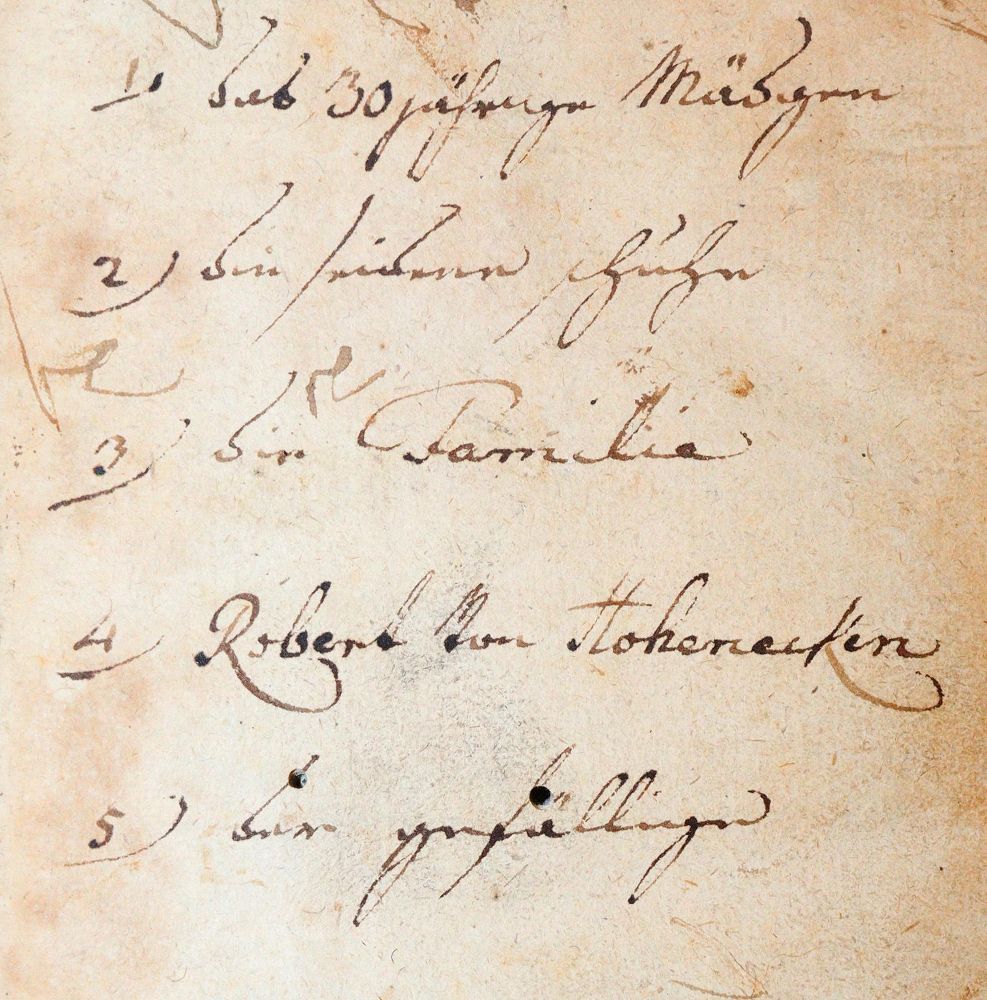 1) das 30 jährige Mädgen
2) die seidene schuhe
3) die Familie
4) Robert von Hohenecken
5) der gefällige